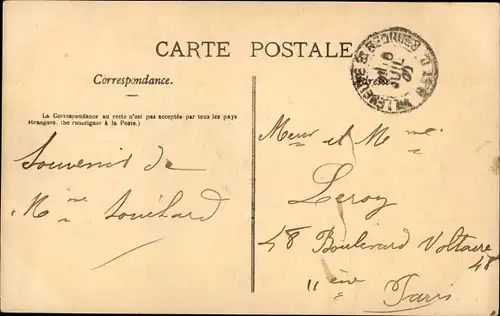 CARTE POSTALE
Correspondance.
La Correspondance au recto n'est pas acceptée par tous les pays
étrangers. (Se renseigner à la Poste.)
Adresse
JUIL
Souvenir de
Mme Souchard
Meur et Mme
Leroy
48 Boulevard Voltaire
48
11 ème Paris